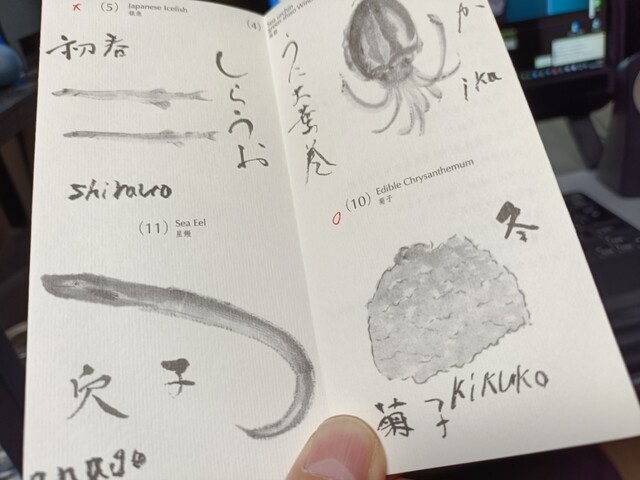 (5) Japanese Icefish
銀魚
初春
しらうお
shirauo
(11) Sea Eel
星鰻
穴子
anago
(4)
うに大葉巻
か
ika
(10) Edible Chrysanthemum
菊子
冬
菊子
kikuko